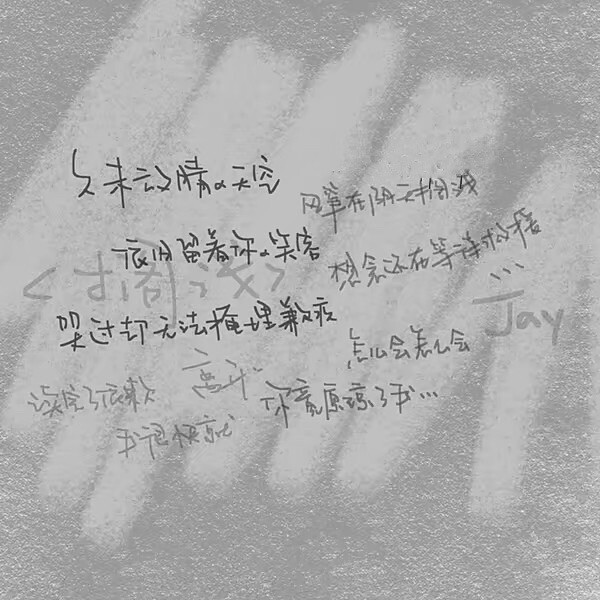 久未放晴的天空
风筝在阴天搁浅
依旧留着你的笑容
想念还在等待救援
<搁浅>
...
—Jay
哭过却无法掩埋歉疚
怎么会怎么会
读完了依赖
我很快就
离开
你竟原谅了我...